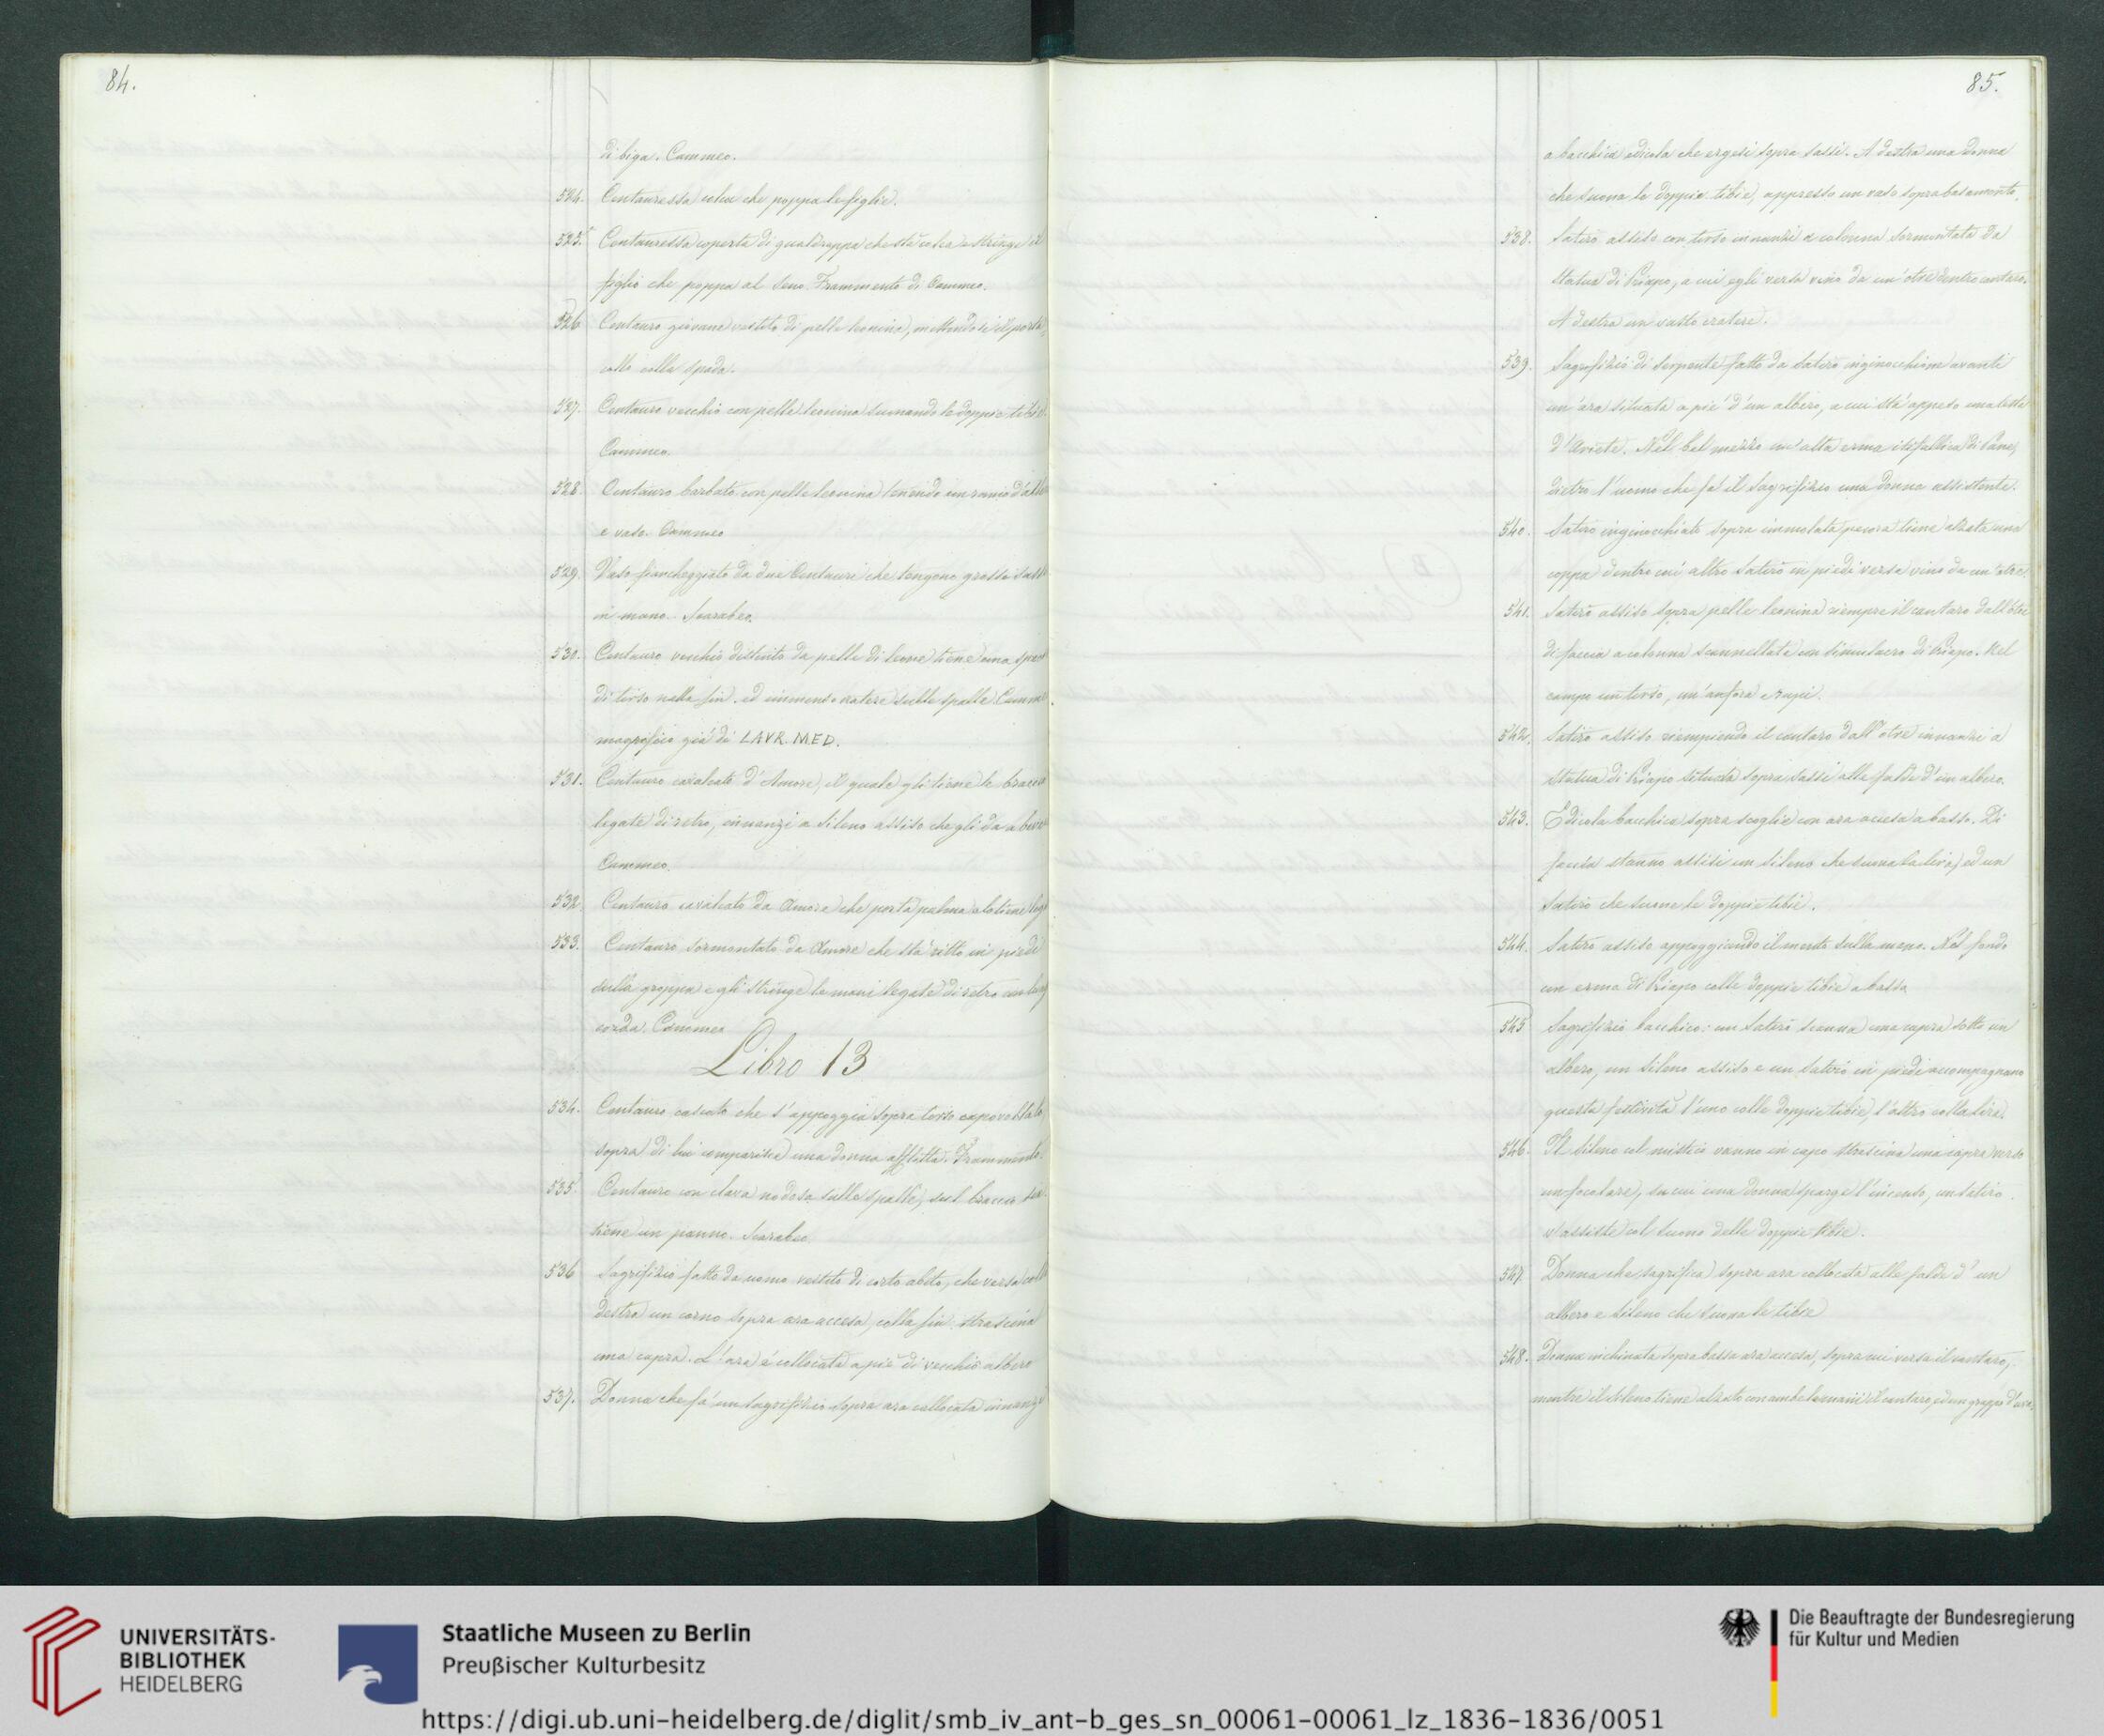 84.
di biga. Cammeo.
524. Centauressa colca che poppa le figlie.
525. Centauressa coperta di gualdrappa che stà colca e stringe il
figlio che poppa al seno. Frammento di Cammeo.
526 Centauro giovane vestito di pelle leonina, mettendosi il porta,
collo colla spada.
527. Centauro vecchio con pelle leonina suonando le doppie tibie.
Cammeo.
528 Centauro barbato con pelle leonina tenendo un ramo d'albe
e vaso. Cammeo
529. Vaso fiancheggiato da due Centauri che tengono grosso sasso
in mano. Scarabeo.
530. Centauro vecchio distinto da pelle di leone tiene una spec
di tirso nella sin. ed immenso cratere sulle spalle. Camme
magnifico già di LAVR. MED.
531. Centauro cavalcato d'Amore, il quale gli tiene le braccia
legate di retro, innanzi a Sileno assiso che gli da a bere
Cammeo.
532 Centauro cavalcato da Amore che porta palma e lo tiene leg
533. Centauro sormontato da Amore che stà ritto in piedi
sulla groppa e gli stringe le mani legate di retro con lung
corda. Cammeo
Libro 13
534. Centauro cascato che s'appoggia sopra torso capovoltato,
sopra di lui comparisce una donna afflitta. Frammento.
535. Centauro con clava nodosa sulle spalle, sul braccio sin.
tiene un panno. Scarabeo.
536 Sagrifizio fatto da uomo vestito di corto abito, che versa coll
destra un corno sopra ara accesa, colla sin. strascina
una capra. L'ara è collocata a piè di vecchio albero
537. Donna che fà un sagrifizio sopra ara collocata innanzi
85.
a bacchica edicola che ergesi sopra sassi. A destra una donna
che suona le doppie tibie, appresso un vaso sopra basamento.
538. Satiro assiso con tirso innanzi a colonna sormontata da
statua di Priapo, a cui egli versa vino da un'otre dentro cantaro.
A destra un vasto cratere.
539. Sagrifizio di serpente fatto da Satiro inginocchione avanti
un'ara situata a pie' d'un albero, a cui stà appeso una testa
d'Ariete. Nel bel mezzo un'alta erma itifallica di Pane,
dietro l'uomo che fà il sagrifizio una donna assistente.
540. Satiro inginocchiato sopra immolata pecora tiene alzata una
coppa dentro cui altro Satiro in piedi versa vino da un'otre.
541. Satiro assiso sopra pelle leonina riempie il cantaro dall'otre
di faccia a colonna scannellata con simulacro di Priapo. Nel
campo un tirso, un'anfora e rupi.
542. Satiro assiso riempiendo il cantaro dall'otre innanzi a
statua di Priapo situata sopra sassi alle falde d'un albero.
543. Edicola bacchica sopra scoglie con ara accesa abasso. Di
faccia stanno assisi un Sileno che suona la lira, ed un
Satiro che suona le doppie tibie.
544. Satiro assiso appoggiando il mento sulla mano. Nel fondo
un erma di Priapo colle doppie tibie abasso
545 Sagrifizio bacchico: un Satiro scanna una capra sotto un
albero, un Sileno assiso e un Satiro in piedi accompagnano
questa festività l'uno colle doppie tibie, l'altro colla lira.
546. Il Sileno col mistico vanno in capo strascina una capra verso
un focolare, su cui una donna sparge l'incenso, un Satiro
v'assiste col suono delle doppie tibie.
547. Donna che sagrifica sopra ara collocata alle falde d'un
albero e Sileno che suona le tibie
548. Donna inchinata sopra bassa ara accesa, sopra cui versa il cantaro,
mentre il Sileno tiene alzato con ambe le mani il cantaro, ed un grappo d'uva.
UNIVERSITÄTS-
BIBLIOTHEK
HEIDELBERG
Staatliche Museen zu Berlin
Preußischer Kulturbesitz
Die Beauftragte der Bundesregierung
für Kultur und Medien
https://digi.ub.uni-heidelberg.de/diglit/smb_iv_ant-b_ges_sn_00061-00061_lz_1836-1836/0051